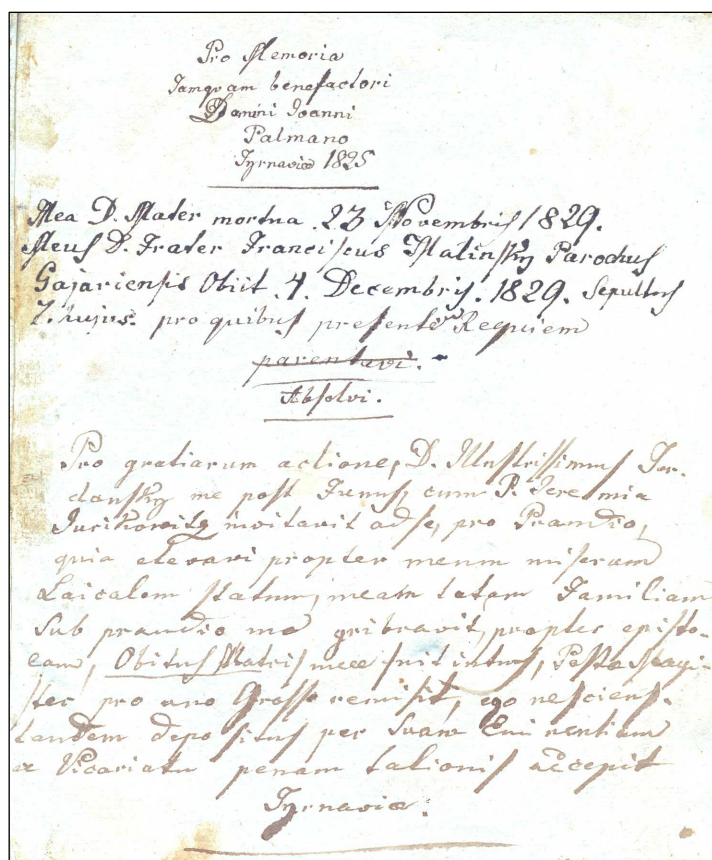 Pro Memoria
Tamquam benefactori
Domini Joanni
Palmano
Tyrnaviæ 1825
Mea D. Mater mortua. 23 Novembris 1829.
Meus D. Frater Franciscus Malinsky Parochus
Gajariensis Obiit. 4. Decembris. 1829. Sepultus
7. hujus. pro quibus presentem Requiem
parentavi.
Absolvi.
Pro gratiarum actione, D. Illustrissimus Jor-
dansky me post Funus, cum P. Jeremia
invitavit ad se, pro Prandio,
quia propter meum miserum
Laicalem statum, meam totam Familiam
sub prandio me gribravit, propter episto-
Obitus Matris meæ fuit intus, Posta Magi-
ster pro uno Grosso remisit, ego nesciens.
tandem depositus per Suam Eminentiam
ex Vicariatu penam talionis accepit
Tyrnaviæ.